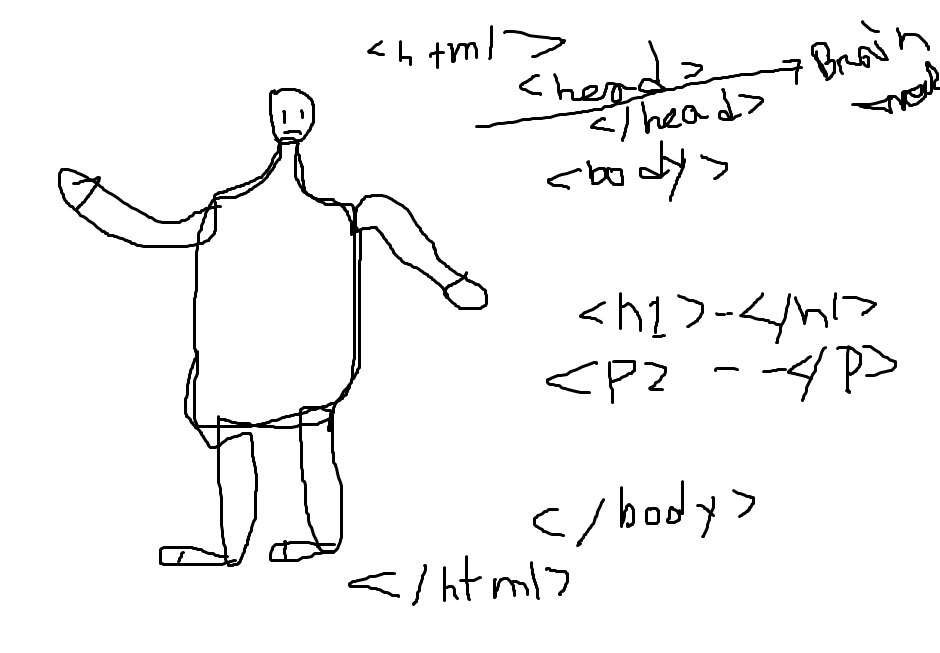 <html>
<head> Brain
</head>
<body>
<h1>-</h1>
<p2 - -</p>
</body>
</html>